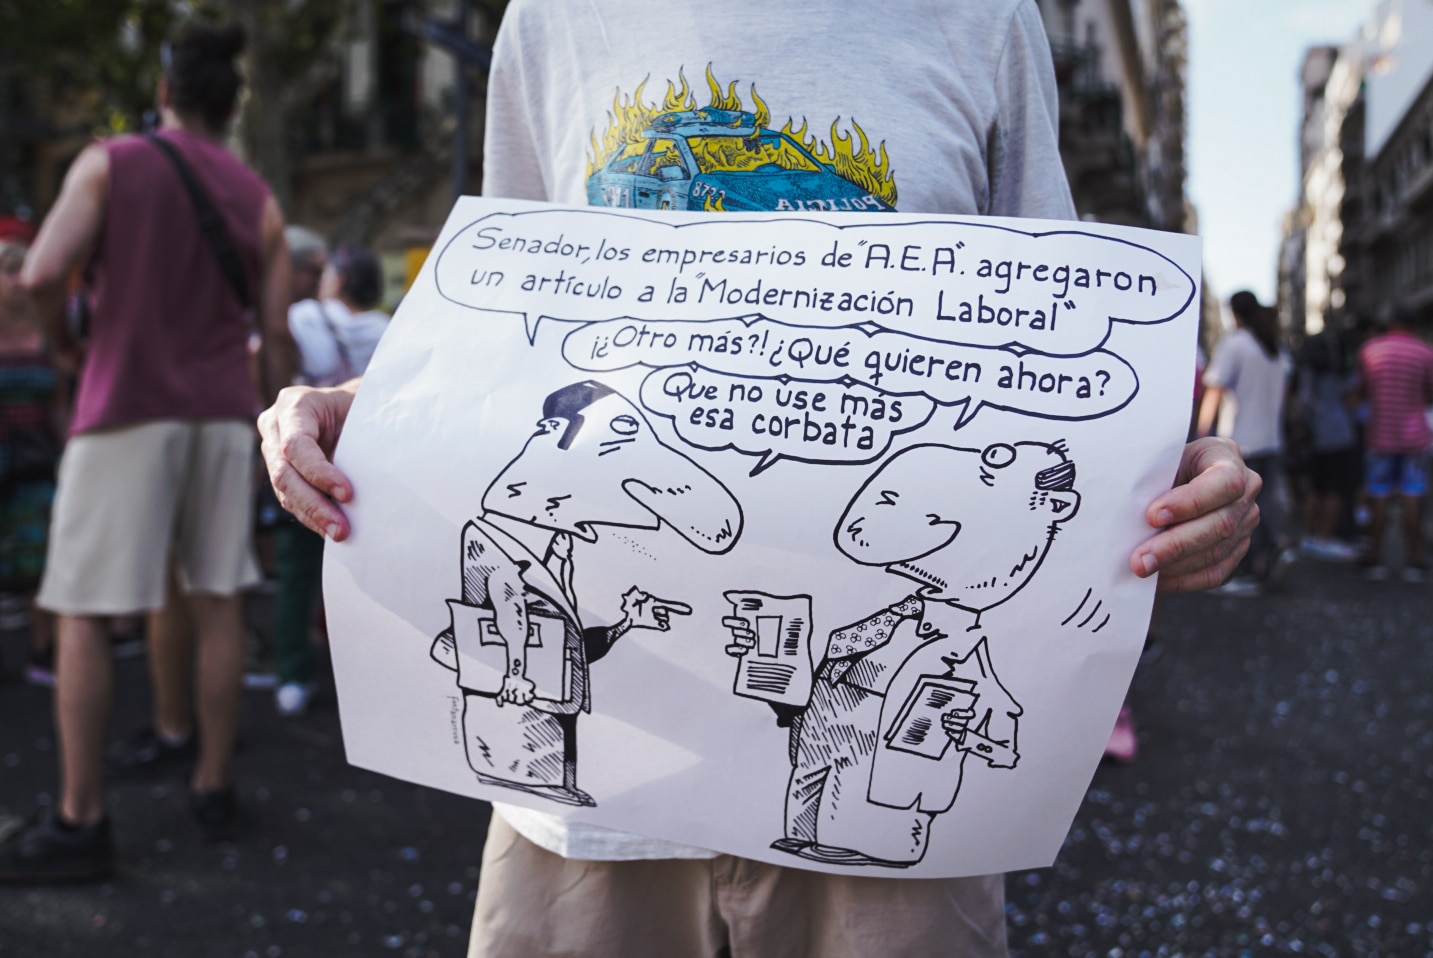 8722
POLICIA
Senador, los empresarios de "A.E.A". agregaron
un artículo a la "Modernización Laboral"
¡¿Otro más?! ¿Qué quieren ahora?
Que no use más
esa corbata
fontanarrosa